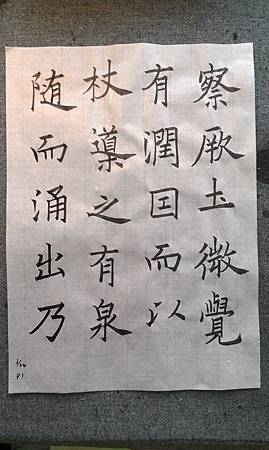 察厥土微覺
有潤因而以
杖導之有泉
随而涌出乃